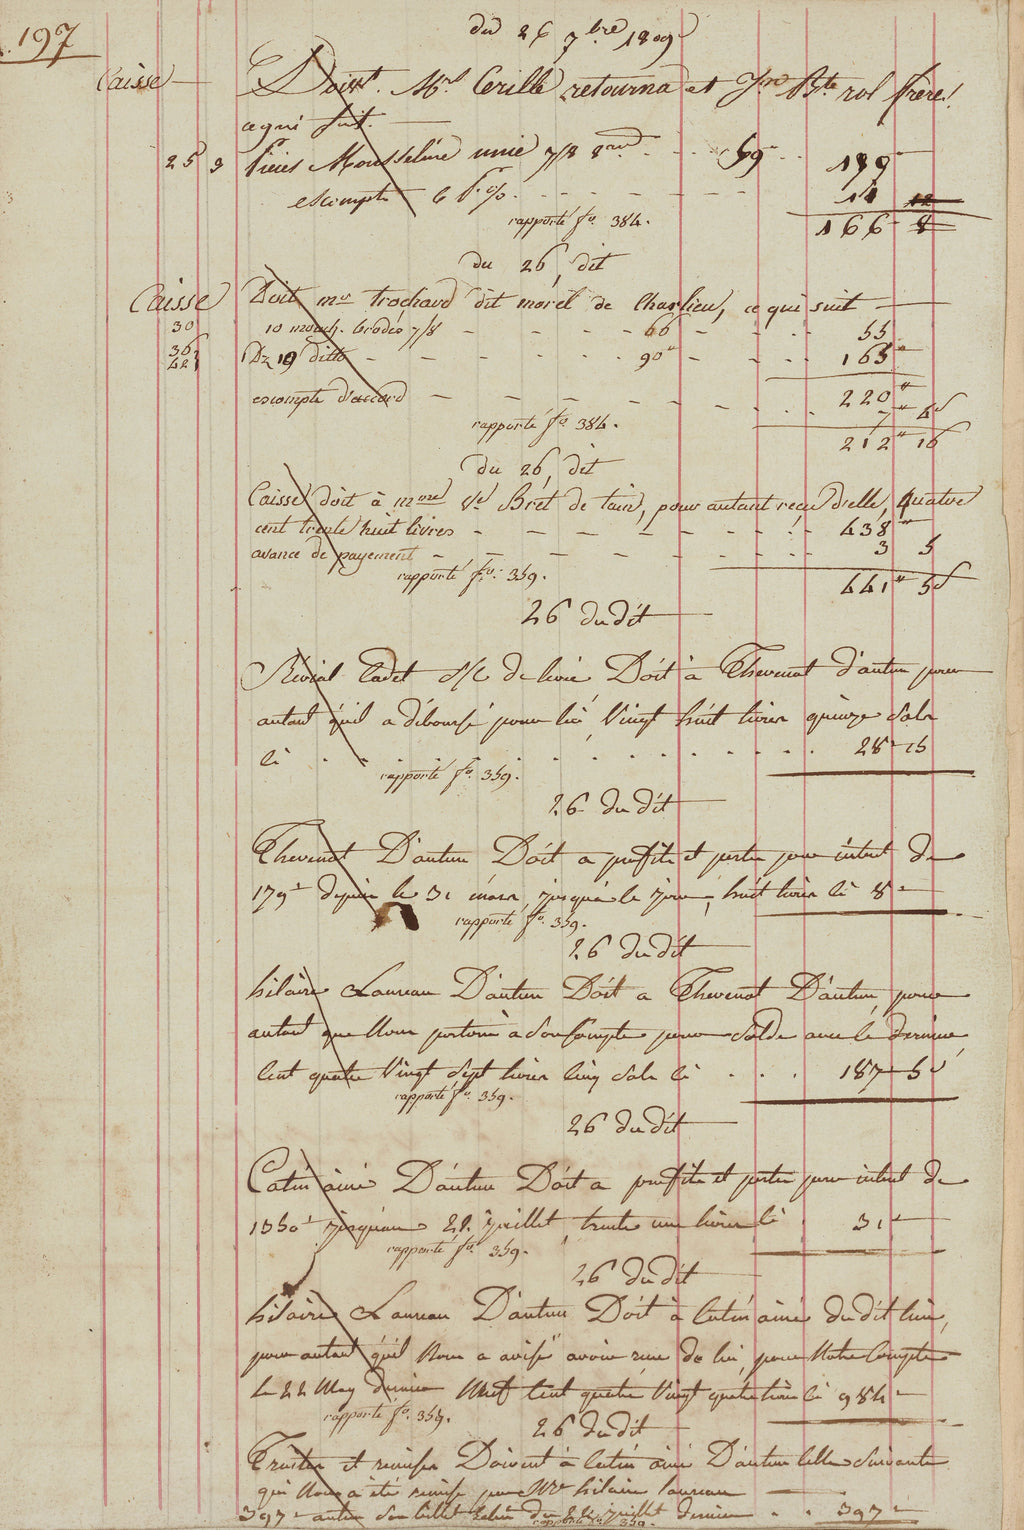 197
du 26 7bre 1809
Caisse Doivt. Mrs Cerille retourna et Jn Bte rol frère!
ce qui suit.
25 3 Pieces Mousseline unie 7/8 59 199
escompte 6 P.% 11 12
rapporté fo. 384.
166 8
du 26, dit
Caisse Doit mr trochard dit morel de Charlieu, ce qui suit
30 10 mouch. brodés 7/8 66 55
36 1 Dz 10 ditto 90" 165"
421
220"
escompte d'accord 7" 4s
rapporté fo. 384.
212" 16
du 26, dit
Caisse doit à mme Ve Bret de tain, pour autant reçu d'elle, quatre
cent trente huit livres 438"
avance de payement 3 5
rapporté fo. 359.
441" 5s
26 du dit
Rivial Cadet s/c de livre Doit à Thevenot d'autun pour
autant qu'il a déboursé pour lui, Vingt huit livres quinze sols
ci 28 15
rapporté fo. 359.
26 du dit
Thevenot D'autun Doit a profits et pertes pour interet de
179 depuis le 31 mars, jusqu'a ce jour, huit livres ci 8
rapporté fo. 359.
26 du dit
hilaire Laureau D'autun Doit a Thevenot D'autun, pour
autant que Nous portons a son Compte pour solde avec le dernier
Cent quatre Vingt Sept livres Cinq sols ci 187 5s
rapporté fo. 359.
26 du dit
Catin ainé D'autun Doit a profits et pertes pour interet de
1350 jusqu'au 22. juillet, trente une livres ci 31
rapporté fo. 359.
26 du dit
hilaire Laureau D'autun Doit à Catin ainé du dit lieu,
pour autant qu'il Nous a avisé avoir reçu de lui, pour Notre Compte
le 22 May dernier Neuf Cent quatre Vingt quatre livres ci 984
rapporté fo. 359.
26 du dit
Traites et remises Doivent à Catin ainé D'autun Celle Suivante
qui Nous a été remise par Mr hilaire Laureau
397 autun son billet du 22 juillet dernier 397
rapporté fo. 359.